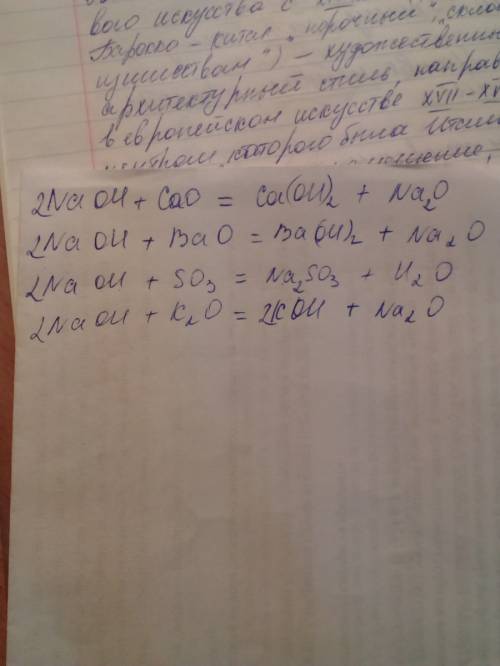 вого искусства с
Барокко - китал. "порочный", склон
ущиствам") - художественн
архитектурный стиль, направ
в европейском искусстве XVII - XV
центром которого была Итал
2NaOH + CaO = Ca(OH)₂ + Na₂O
2NaOH + BaO = Ba(OH)₂ + Na₂O
2NaOH + SO₃ = Na₂SO₃ + H₂O
2NaOH + K₂O = 2KOH + Na₂O